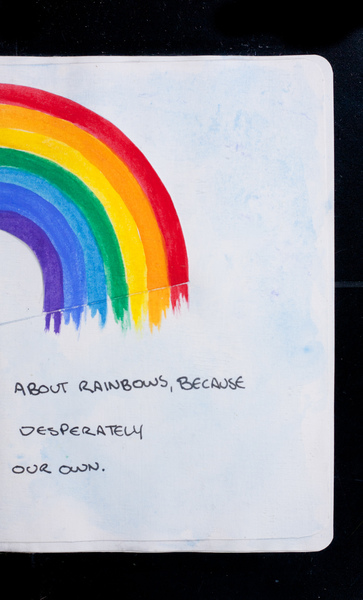 ABOUT RAINBOWS, BECAUSE
DESPERATELY
OUR OWN.